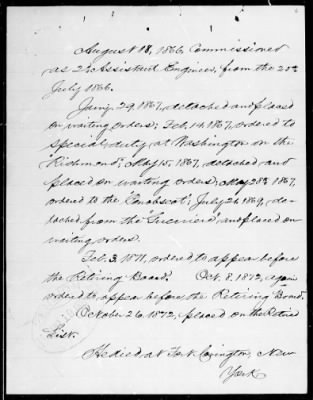 August 18, 1866, Commissioned
as 2d Assistant Engineer, from the 20th
July 1866.
Jany 29, 1867, detached and placed
on waiting orders; Feb. 14, 1867, ordered to
special duty at Washington on the
"Richmond"; May 15, 1867, detached and
placed on waiting orders; May 28th 1867,
ordered to the "Penobscot"; July 26 1869, de-
tached from the "Guerriere", and placed on
waiting orders.
Feb. 3, 1871, ordered to appear before
the Retiring Board. Oct. 8. 1872, again
ordered to appear before the Retiring Board.
October 26, 1872, placed on the Retired
List.
He died at Fork Covington, New
York.